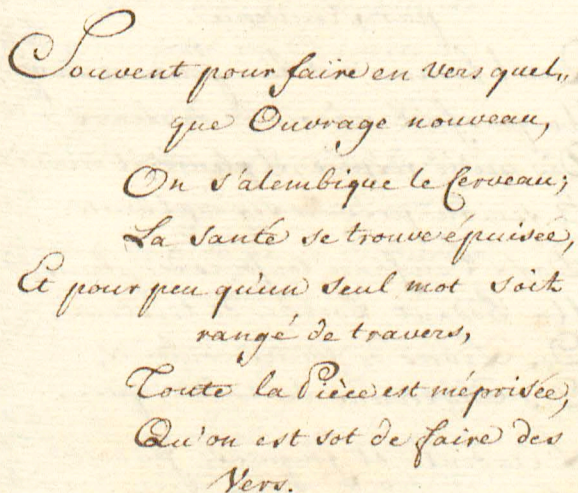 Souvent pour faire en vers quel„
que Ouvrage nouveau,
On s'alembique le Cerveau;
La santé se trouve epuisée,
Et pour peu qu'un seul mot soit
rangé de travers,
Toute la Pièce est méprisée,
Qu'on est sot de faire des
Vers.